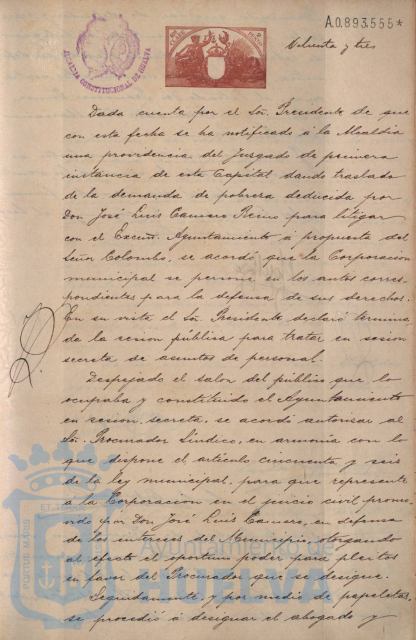 A.0.893.555*
ALCALDIA CONSTITUCIONAL DE HUELVA
Ochenta y tres
Dada cuenta por el Sor. Presidente de que
con esta fecha se ha notificado á la Alcaldia
una providencia del Juzgado de primera
instancia de esta Capital dando traslado
de la demanda de pobreza deducida por
Don José Luis Camero Reino para litigar
con el Excmo. Ayuntamiento á propuesta del
Señor Colombo, se acordó que la Corporacion
municipal se persone en los autos corres-
pondientes para la defensa de sus derechos.
En su vista el Sor. Presidente declaró termina-
da la sesion pública para tratar en sesion
secreta de asuntos de personal.
Despejado el salon del público que lo
ocupaba y constituido el Ayuntamiento
en sesion secreta, se acordó autorizar al
Sor. Procurador Sindico, en armonia con lo
que dispone el articulo cincuenta y seis
de la ley municipal, para que represente
á la Corporacion en el juicio civil promo-
vido por Don José Luis Camero, en defensa
de los intereses del Municipio, otorgando
al efecto el oportuno poder para pleitos
en favor del Procurador que se designe.
Seguidamente y por medio de papeletas,
se procedió á designar el abogado y
PORTUS MARIS
ET TERRAE
Ayuntamiento de
HUELVA